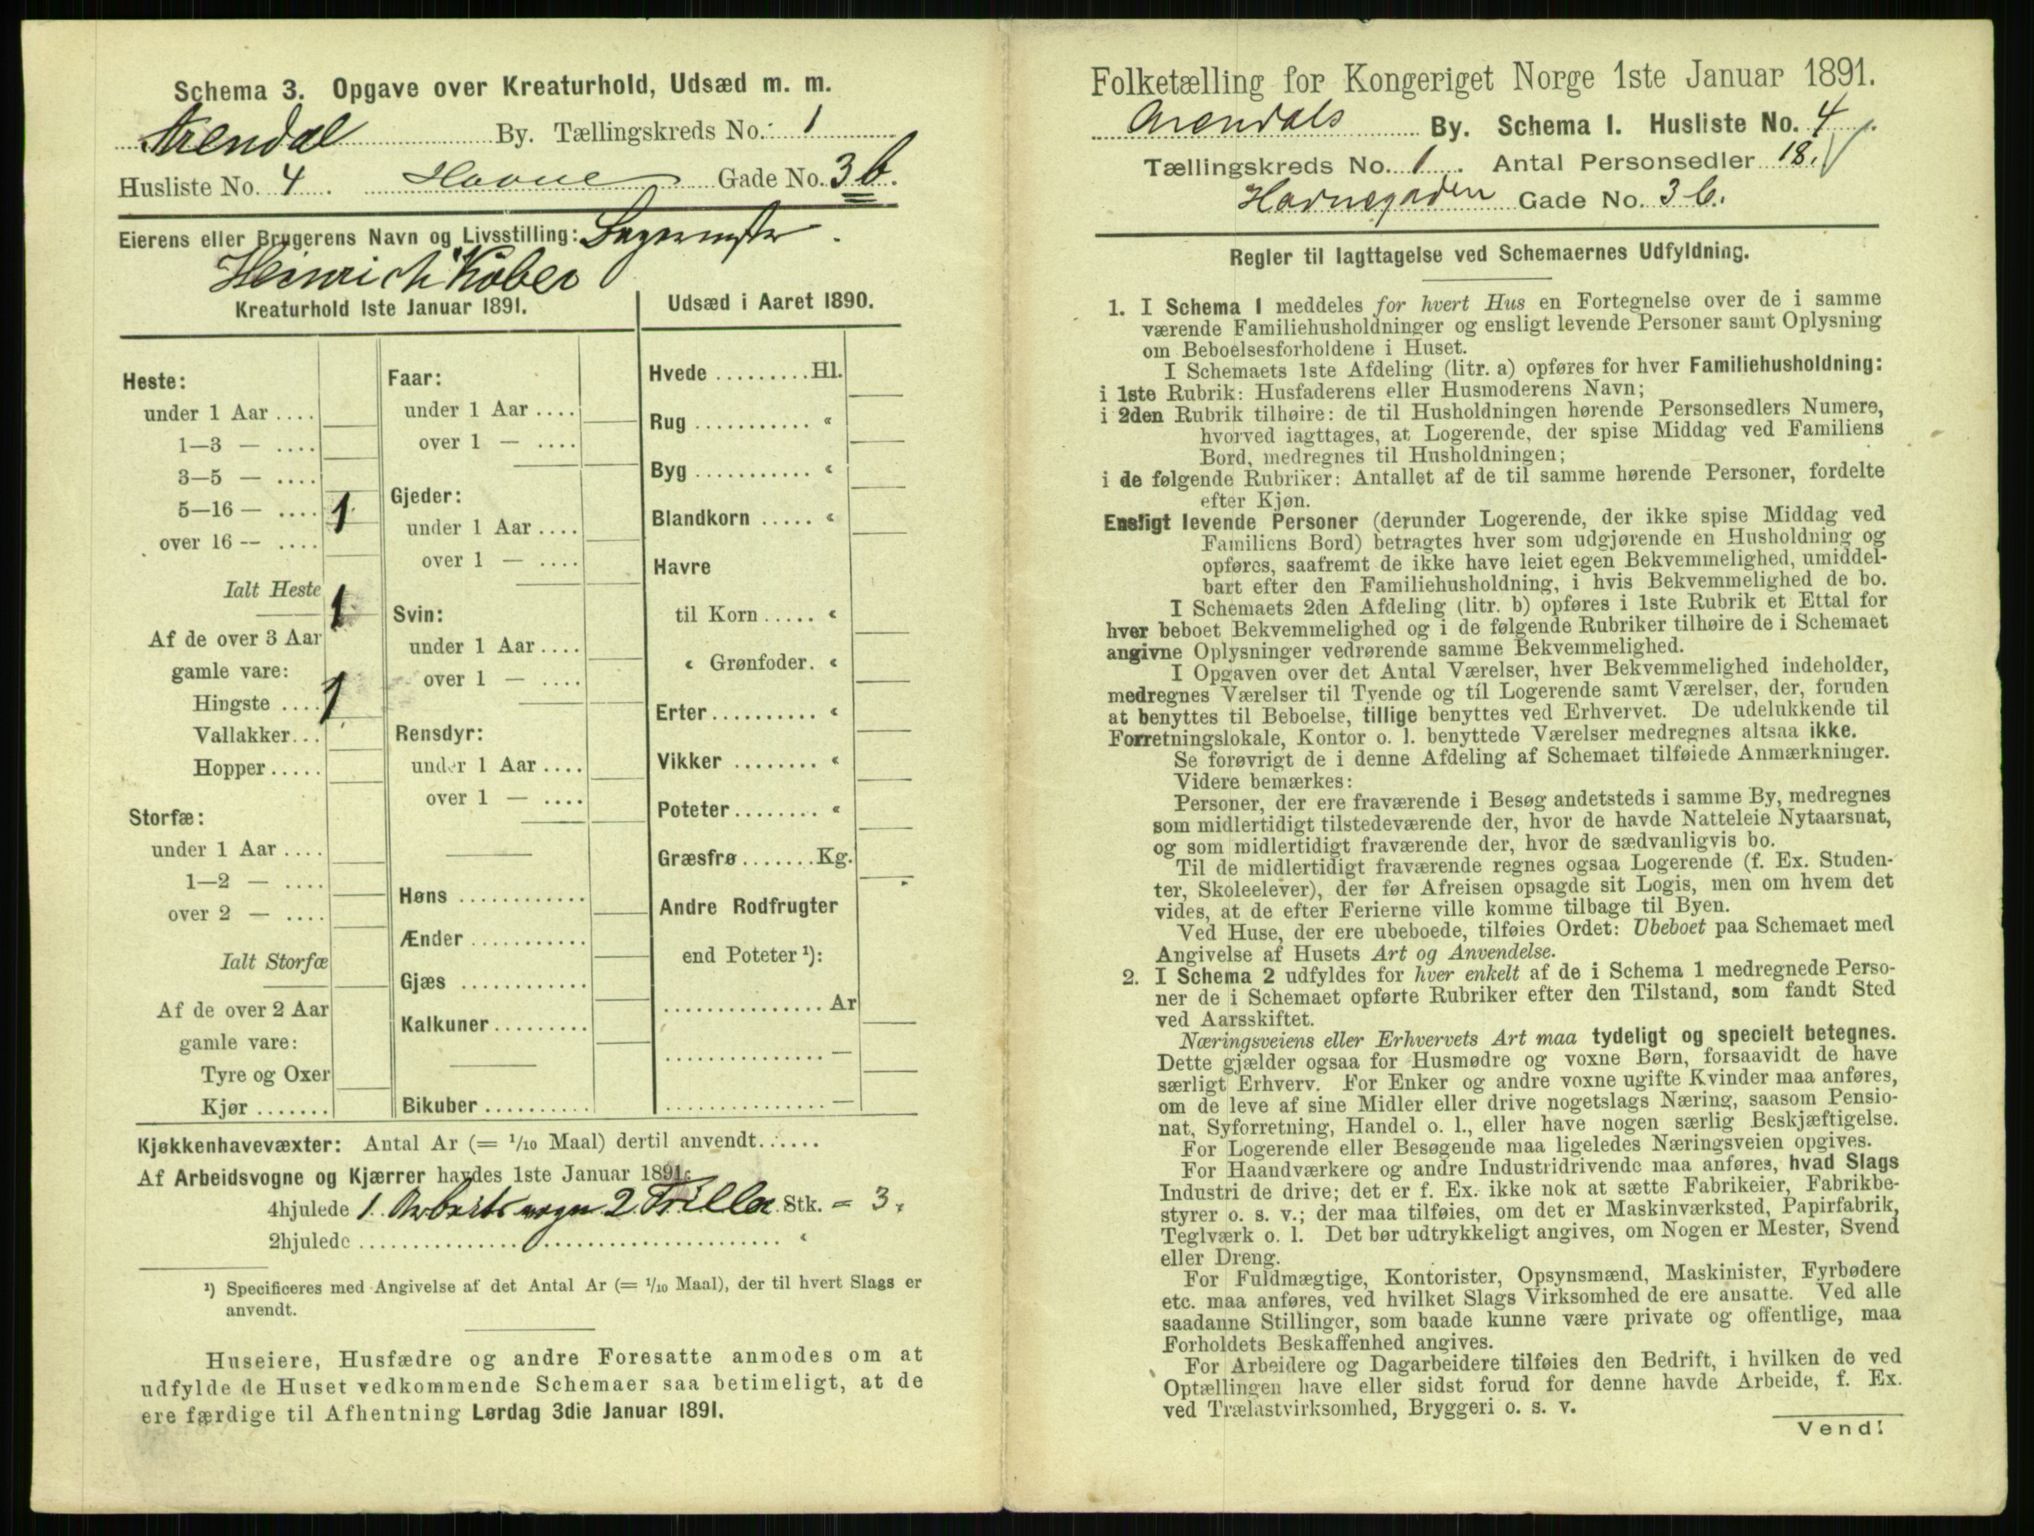 Schema 3. Opgave over Kreaturhold, Udsæd m. m.
Arendal By. Tællingskreds No. 1
Husliste No. 4 Havne Gade No. 3b.
Eierens eller Brugerens Navn og Livsstilling:
Heinrich Køber
Kreaturhold 1ste Januar 1891.
Heste:
under 1 Aar ....
1—3 — ....
3—5 — ....
5—16 — .... 1
over 16 — ....
Ialt Heste 1
Af de over 3 Aar
gamle vare:
Hingste .... 1
Vallakker...
Hopper .....
Storfæ:
under 1 Aar ....
1—2 — ....
over 2 — ....
Ialt Storfæ
Af de over 2 Aar
gamle vare:
Tyre og Oxer
Kjør .......
Faar:
under 1 Aar ....
over 1 — ....
Gjeder:
under 1 Aar ....
over 1 — ....
Svin:
under 1 Aar ....
over 1 — ....
Rensdyr:
under 1 Aar ....
over 1 — ....
Høns ............
Ænder ...........
Gjæs ............
Kalkuner.........
Bikuber ..........
Udsæd i Aaret 1890.
Hvede ......... Hl.
Rug ........... "
Byg ........... "
Blandkorn ..... "
Havre
til Korn ..... "
" Grønfoder. "
Erter .......... "
Vikker ........ "
Poteter ........ "
Græsfrø ....... Kg.
Andre Rodfrugter
end Poteter ¹):
............... Ar
............... —
............... —
Kjøkkenhavevæxter: Antal Ar (= 1/10 Maal) dertil anvendt......
Af Arbeidsvogne og Kjærrer havdes 1ste Januar 1891:
4hjulede 1 Arbeitsvogn 2 Triller Stk. = 3.
2hjulede .......................................... "
¹) Specificeres med Angivelse af det Antal Ar (= 1/10 Maal), der til hvert Slags er
anvendt.
Huseiere, Husfædre og andre Foresatte anmodes om at
udfylde de Huset vedkommende Schemaer saa betimeligt, at de
ere færdige til Afhentning Lørdag 3die Januar 1891.
Folketælling for Kongeriget Norge 1ste Januar 1891.
Arendals By. Schema 1. Husliste No. 4.
Tællingskreds No. 1. Antal Personsedler 18.
Havnegaden Gade No. 3b.
Regler til Iagttagelse ved Schemaernes Udfyldning.
1. I Schema 1 meddeles for hvert Hus en Fortegnelse over de i samme
værende Familiehusholdninger og ensligt levende Personer samt Oplysning
om Beboelsesforholdene i Huset.
I Schemaets 1ste Afdeling (litr. a) opføres for hver Familiehusholdning:
i 1ste Rubrik: Husfaderens eller Husmoderens Navn;
i 2den Rubrik tilhøire: de til Husholdningen hørende Personsedlers Numere,
hvorved iagttages, at Logerende, der spise Middag ved Familiens
Bord, medregnes til Husholdningen;
i de følgende Rubriker: Antallet af de til samme hørende Personer, fordelte
efter Kjøn.
Ensligt levende Personer (derunder Logerende, der ikke spise Middag ved
Familiens Bord) betragtes hver som udgjørende en Husholdning og
opføres, saafremt de ikke have leiet egen Bekvemmelighed, umiddel-
bart efter den Familiehusholdning, i hvis Bekvemmelighed de bo.
I Schemaets 2den Afdeling (litr. b) opføres i 1ste Rubrik et Ettal for
hver beboet Bekvemmelighed og i de følgende Rubriker tilhøire de i Schemaet
angivne Oplysninger vedrørende samme Bekvemmelighed.
I Opgaven over det Antal Værelser, hver Bekvemmelighed indeholder,
medregnes Værelser til Tyende og til Logerende samt Værelser, der, foruden
at benyttes til Beboelse, tillige benyttes ved Erhvervet. De udelukkende til
Forretningslokale, Kontor o. l. benyttede Værelser medregnes altsaa ikke.
Se forøvrigt de i denne Afdeling af Schemaet tilføiede Anmærkninger.
Videre bemærkes:
Personer, der ere fraværende i Besøg andetsteds i samme By, medregnes
som midlertidigt tilstedeværende der, hvor de havde Natteleie Nytaarsnat,
og som midlertidigt fraværende der, hvor de sædvanligvis bo.
Til de midlertidigt fraværende regnes ogsaa Logerende (f. Ex. Studen-
ter, Skoleelever), der før Afreisen opsagde sit Logis, men om hvem det
vides, at de efter Ferierne ville komme tilbage til Byen.
Ved Huse, der ere ubeboede, tilføies Ordet: Ubeboet paa Schemaet med
Angivelse af Husets Art og Anvendelse.
2. I Schema 2 udfyldes for hver enkelt af de i Schema 1 medregnede Perso-
ner de i Schemaet opførte Rubriker efter den Tilstand, som fandt Sted
ved Aarsskiftet.
Næringsveiens eller Erhvervets Art maa tydeligt og specielt betegnes.
Dette gjælder ogsaa for Husmødre og voxne Børn, forsaavidt de have
særligt Erhverv. For Enker og andre voxne ugifte Kvinder maa anføres,
om de leve af sine Midler eller drive nogetslags Næring, saasom Pensio-
nat, Syforretning, Handel o. l., eller have nogen særlig Beskjæftigelse.
For Logerende eller Besøgende maa ligeledes Næringsveien opgives.
For Haandværkere og andre Industridrivende maa anføres, hvad Slags
Industri de drive; det er f. Ex. ikke nok at sætte Fabrikeier, Fabrikbe-
styrer o. s. v.; der maa tilføies, om det er Maskinværksted, Papirfabrik,
Teglværk o. l. Det bør udtrykkeligt angives, om Nogen er Mester, Svend
eller Dreng.
For Fuldmægtige, Kontorister, Opsynsmænd, Maskinister, Fyrbødere
etc. maa anføres, ved hvilket Slags Virksomhed de ere ansatte. Ved alle
saadanne Stillinger, som baade kunne være private og offentlige, maa
Forholdets Beskaffenhed angives.
For Arbeidere og Dagarbeidere tilføies den Bedrift, i hvilken de ved
Optællingen have eller sidst forud for denne havde Arbeide, f. Ex.
ved Trælastvirksomhed, Bryggeri o. s. v.
Vend!